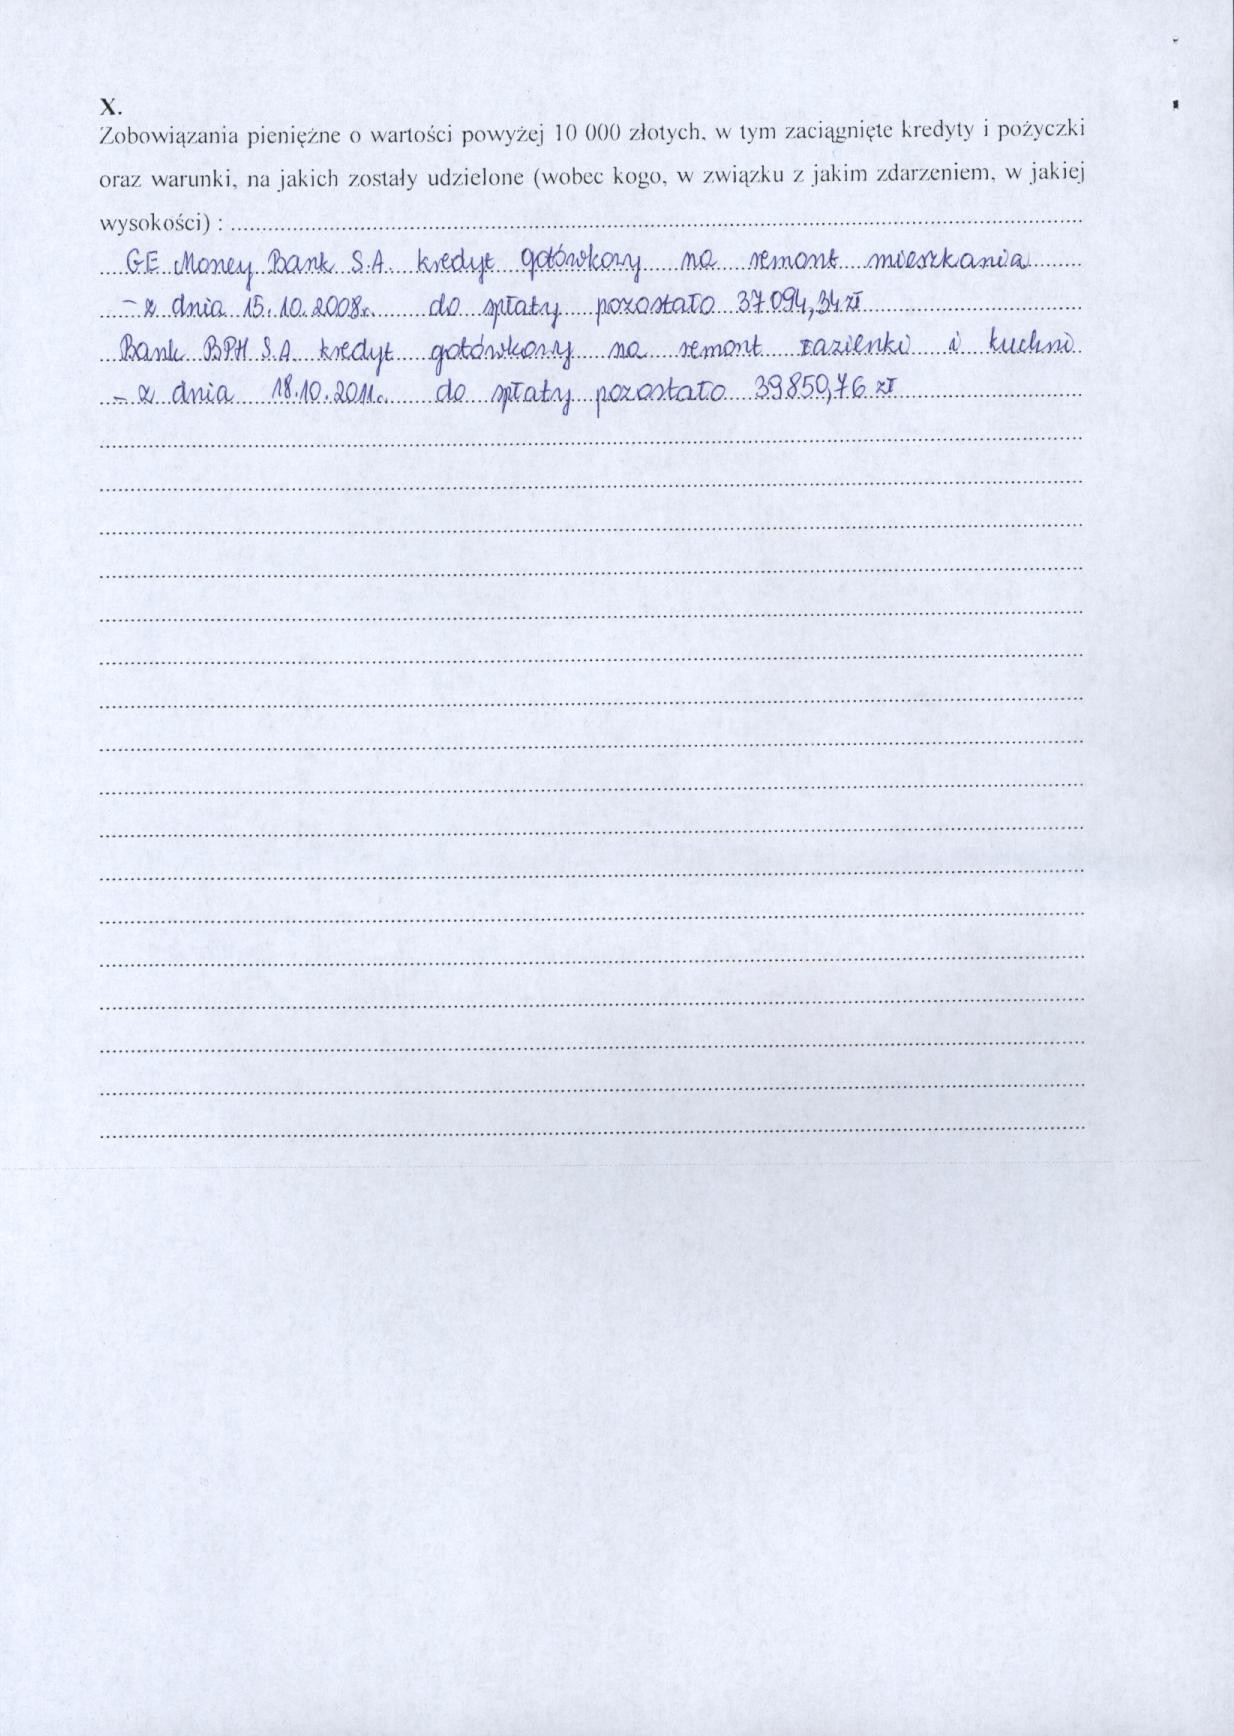 X.
Zobowiązania pieniężne o wartości powyżej 10 000 złotych, w tym zaciągnięte kredyty i pożyczki
oraz warunki, na jakich zostały udzielone (wobec kogo, w związku z jakim zdarzeniem, w jakiej
wysokości) :
GE Money Bank S.A. kredyt gotówkowy na remont mieszkania
- z dnia 15.10.2008r. do spłaty pozostało 37.094,34 zł
Bank BPH S.A. kredyt gotówkowy na remont łazienki i kuchni
- z dnia 18.10.2011r. do spłaty pozostało 39850,76 zł